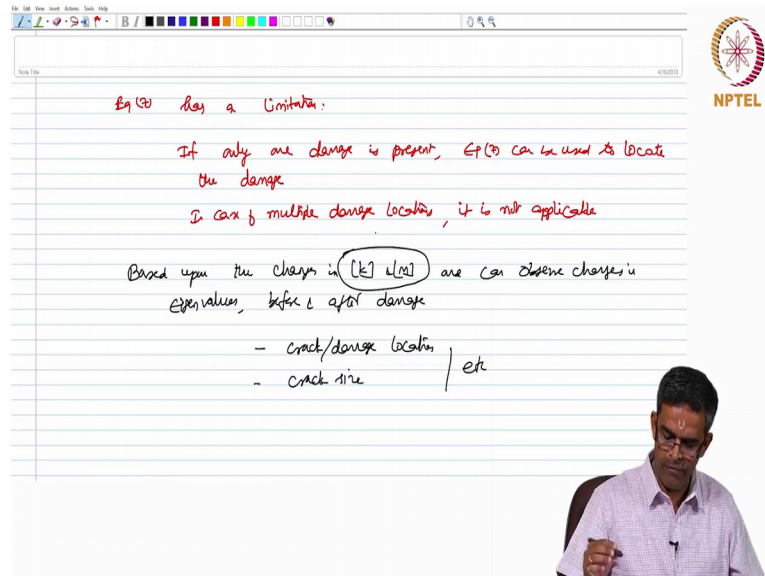 File Edit View Insert Actions Tools Help
NPTEL
Note Title
4/16/2018
Eq (7) has a limitation:
If only one damage is present, Eq (7) can be used to locate
the damage
In case of multiple damage locations, it is not applicable
Based upon the changes in [K] & [M] one can observe changes in
eigenvalues, before & after damage
- crack/damage location
- crack size
etc